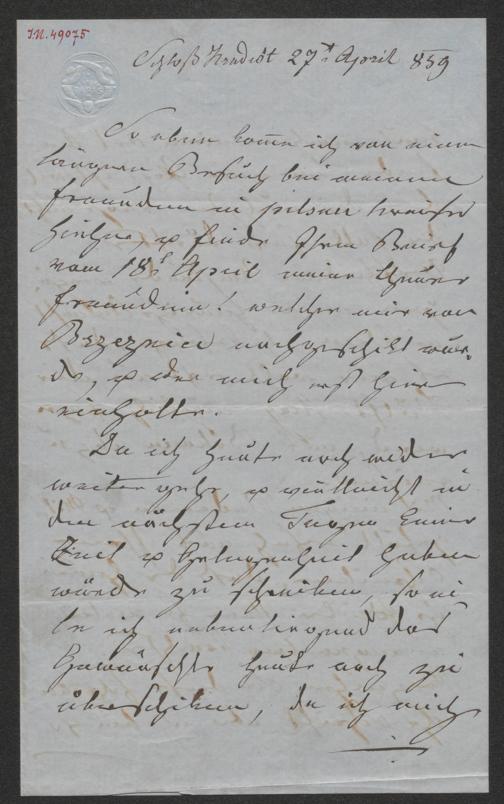 I.N. 49075
Schloß 27t April 859
So eben komme ich von einem
längern Besuch bei meinen
Freunden im pilsner Kreise
hieher & finde Ihren Brief
vom 18t April meine theure
Freundin! welcher mir von
Brzeznic nachgeschikt wur-
de, & der mich erst hier
einholte.
Da ich heute noch wieder
weiter gehe, & vielleicht in
den nächsten Tagen keine
Zeit & Gelegenheit haben
würde zu schreiben, so ei
le ich nebenliegend das
Gewünschte heute noch zu
überschiken, da ich mich